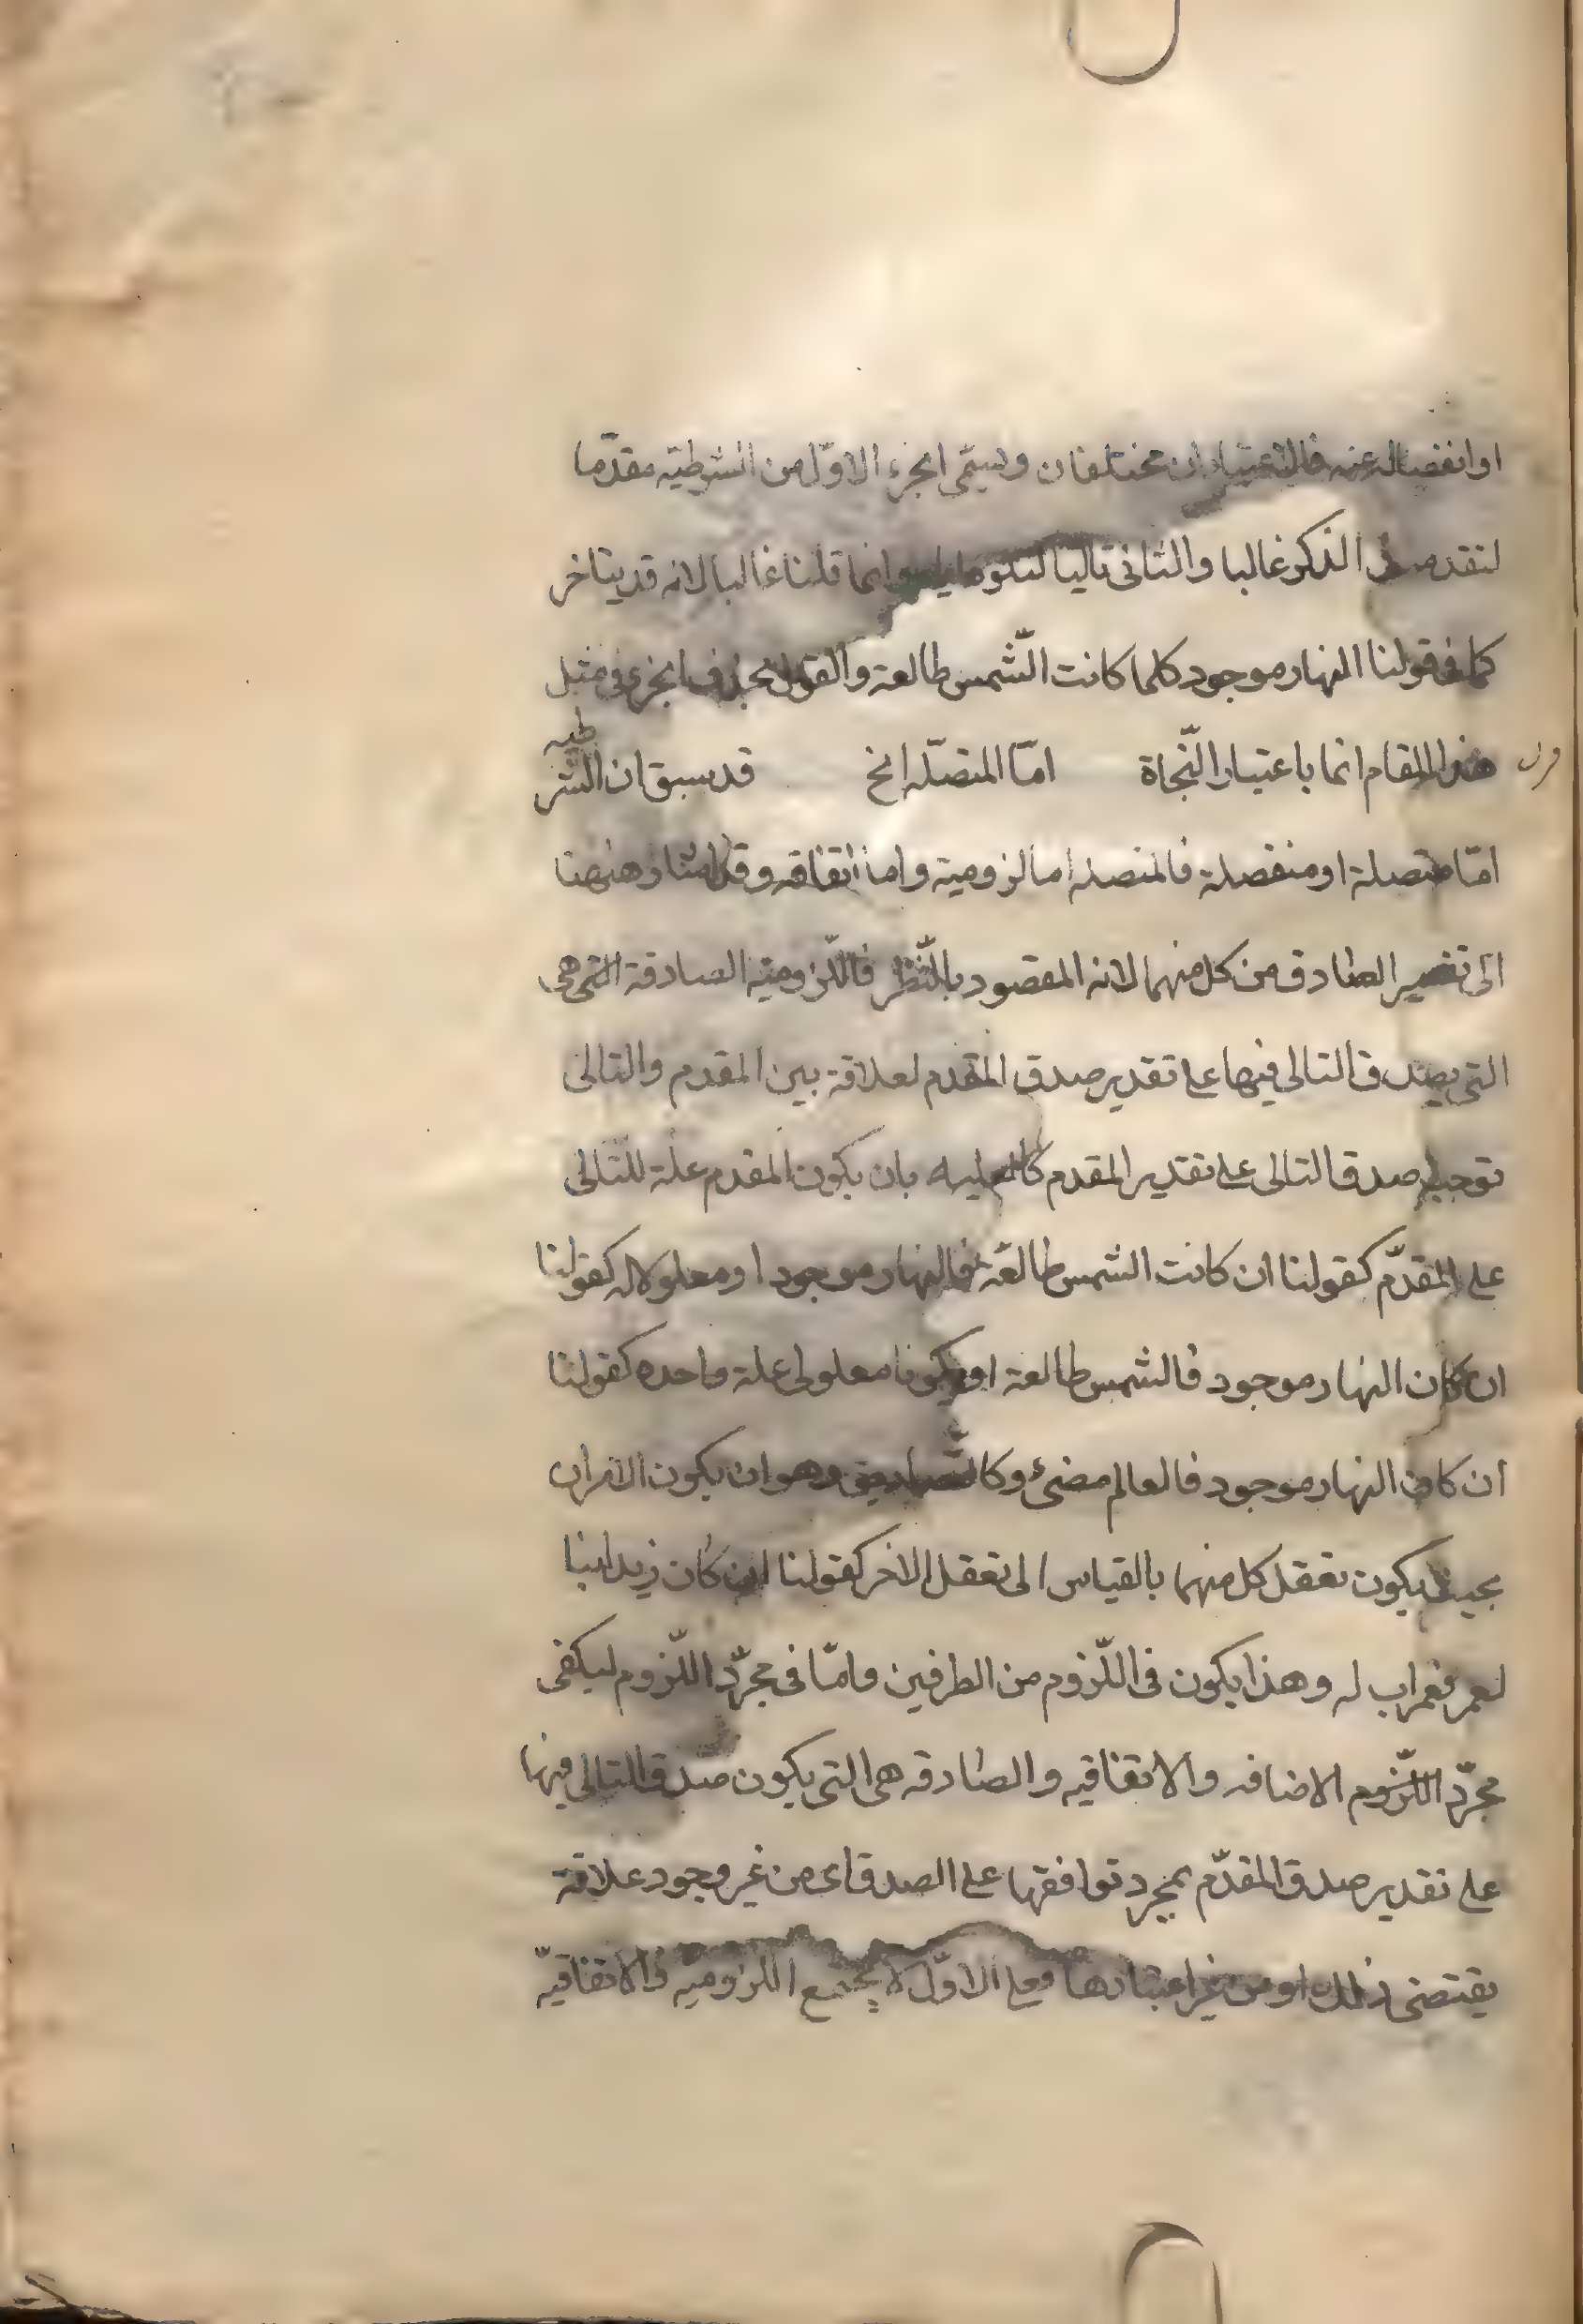 او انفصاله عنه فالاعتباران مختلفان ويسمّى الجزء الاوّل من الشرطيّه مقدّما
لتقدمه فى الذكر غالبا والثانى تاليا لتلوه وانما قلنا غالبا لانه قد يتاخر
كما فى قولنا النهار موجود كلما كانت الشّمس طالعة والقول بحذف الجزء فى مثل
هذا المقام انما باعتبار النّحاة امّا المتصلّه الخ قد سبق ان الشرطيه
امّا متصلة او منفصلة فالمتصله اما لزومية واما اتفاقيه وقد اشار ههنا
الى تفسير الصادق من كل منهما لانه المقصود بالنّظر فاللّزوميّه الصادقة التى هى
التى يصدق التالى فيها على تقدير صدق المقدم لعلاقة بين المقدم والتالى
توجب صدق التالى على تقدير المقدم كالعليه بان يكون المقدم علّة للتّالى
على المقدّم كقولنا ان كانت الشمس طالعة فالنهار موجود او معلولا له كقولنا
ان كان النهار موجود فالشمس طالعة او يكونا معلولى علة واحده كقولنا
ان كان النهار موجود فالعالم مضئ وكالتّضايف وهو ان يكون الامران
بحيث يكون تعقل كل منهما بالقياس الى تعقل الاخر كقولنا ان كان زيد ابنا
لعمر فعمر اب له وهذا يكون فى اللّزوم من الطرفين وامّا فى مجرّد اللّزوم ليكفى
مجرّد اللّزوم الاضافه والاتفاقيه والصادقه هى التى يكون صدق التالى فيها
على تقدير صدق المقدّم بمجرد توافقها على الصدق اى من غير وجود علاقة
يقتضى ذلك او من غير اعتبارها فعلى الاوّل لا يجتمع اللزوميّه والاتفاقيّه